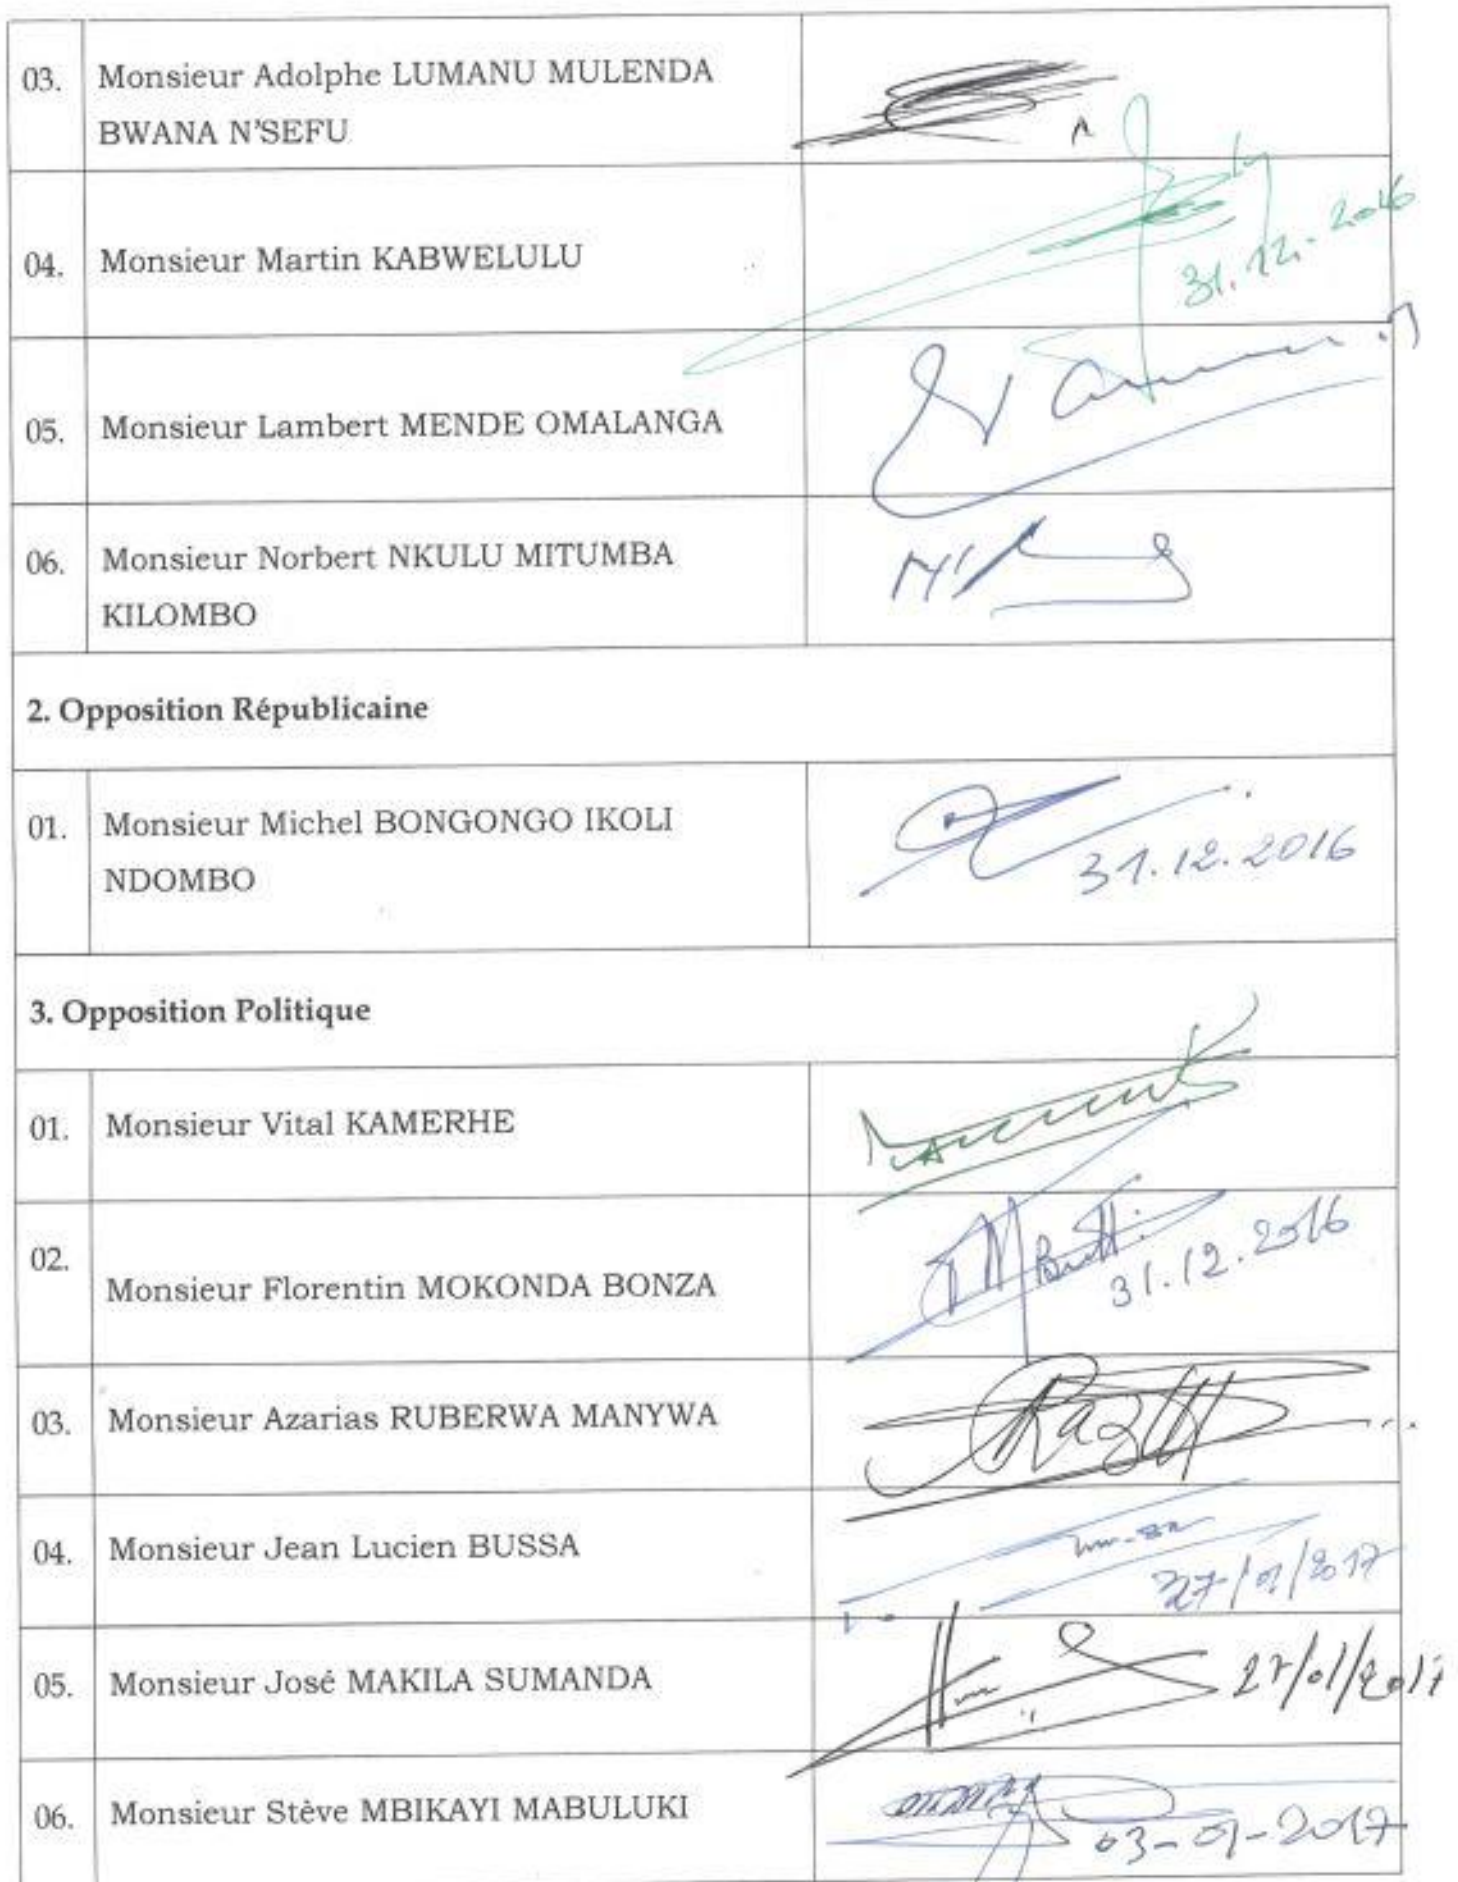 03. Monsieur Adolphe LUMANU MULENDA
BWANA N'SEFU
31.12.-2016
04. Monsieur Martin KABWELULU
05. Monsieur Lambert MENDE OMALANGA
06. Monsieur Norbert NKULU MITUMBA
KILOMBO
2. Opposition Républicaine
01. Monsieur Michel BONGONGO IKOLI
NDOMBO
31.12.2016
3. Opposition Politique
01. Monsieur Vital KAMERHE
02.
Monsieur Florentin MOKONDA BONZA
31.12.2016
03. Monsieur Azarias RUBERWA MANYWA
04. Monsieur Jean Lucien BUSSA
27/01/2017
05. Monsieur José MAKILA SUMANDA
27/01/2017
06. Monsieur Stève MBIKAYI MABULUKI
03-01-2017